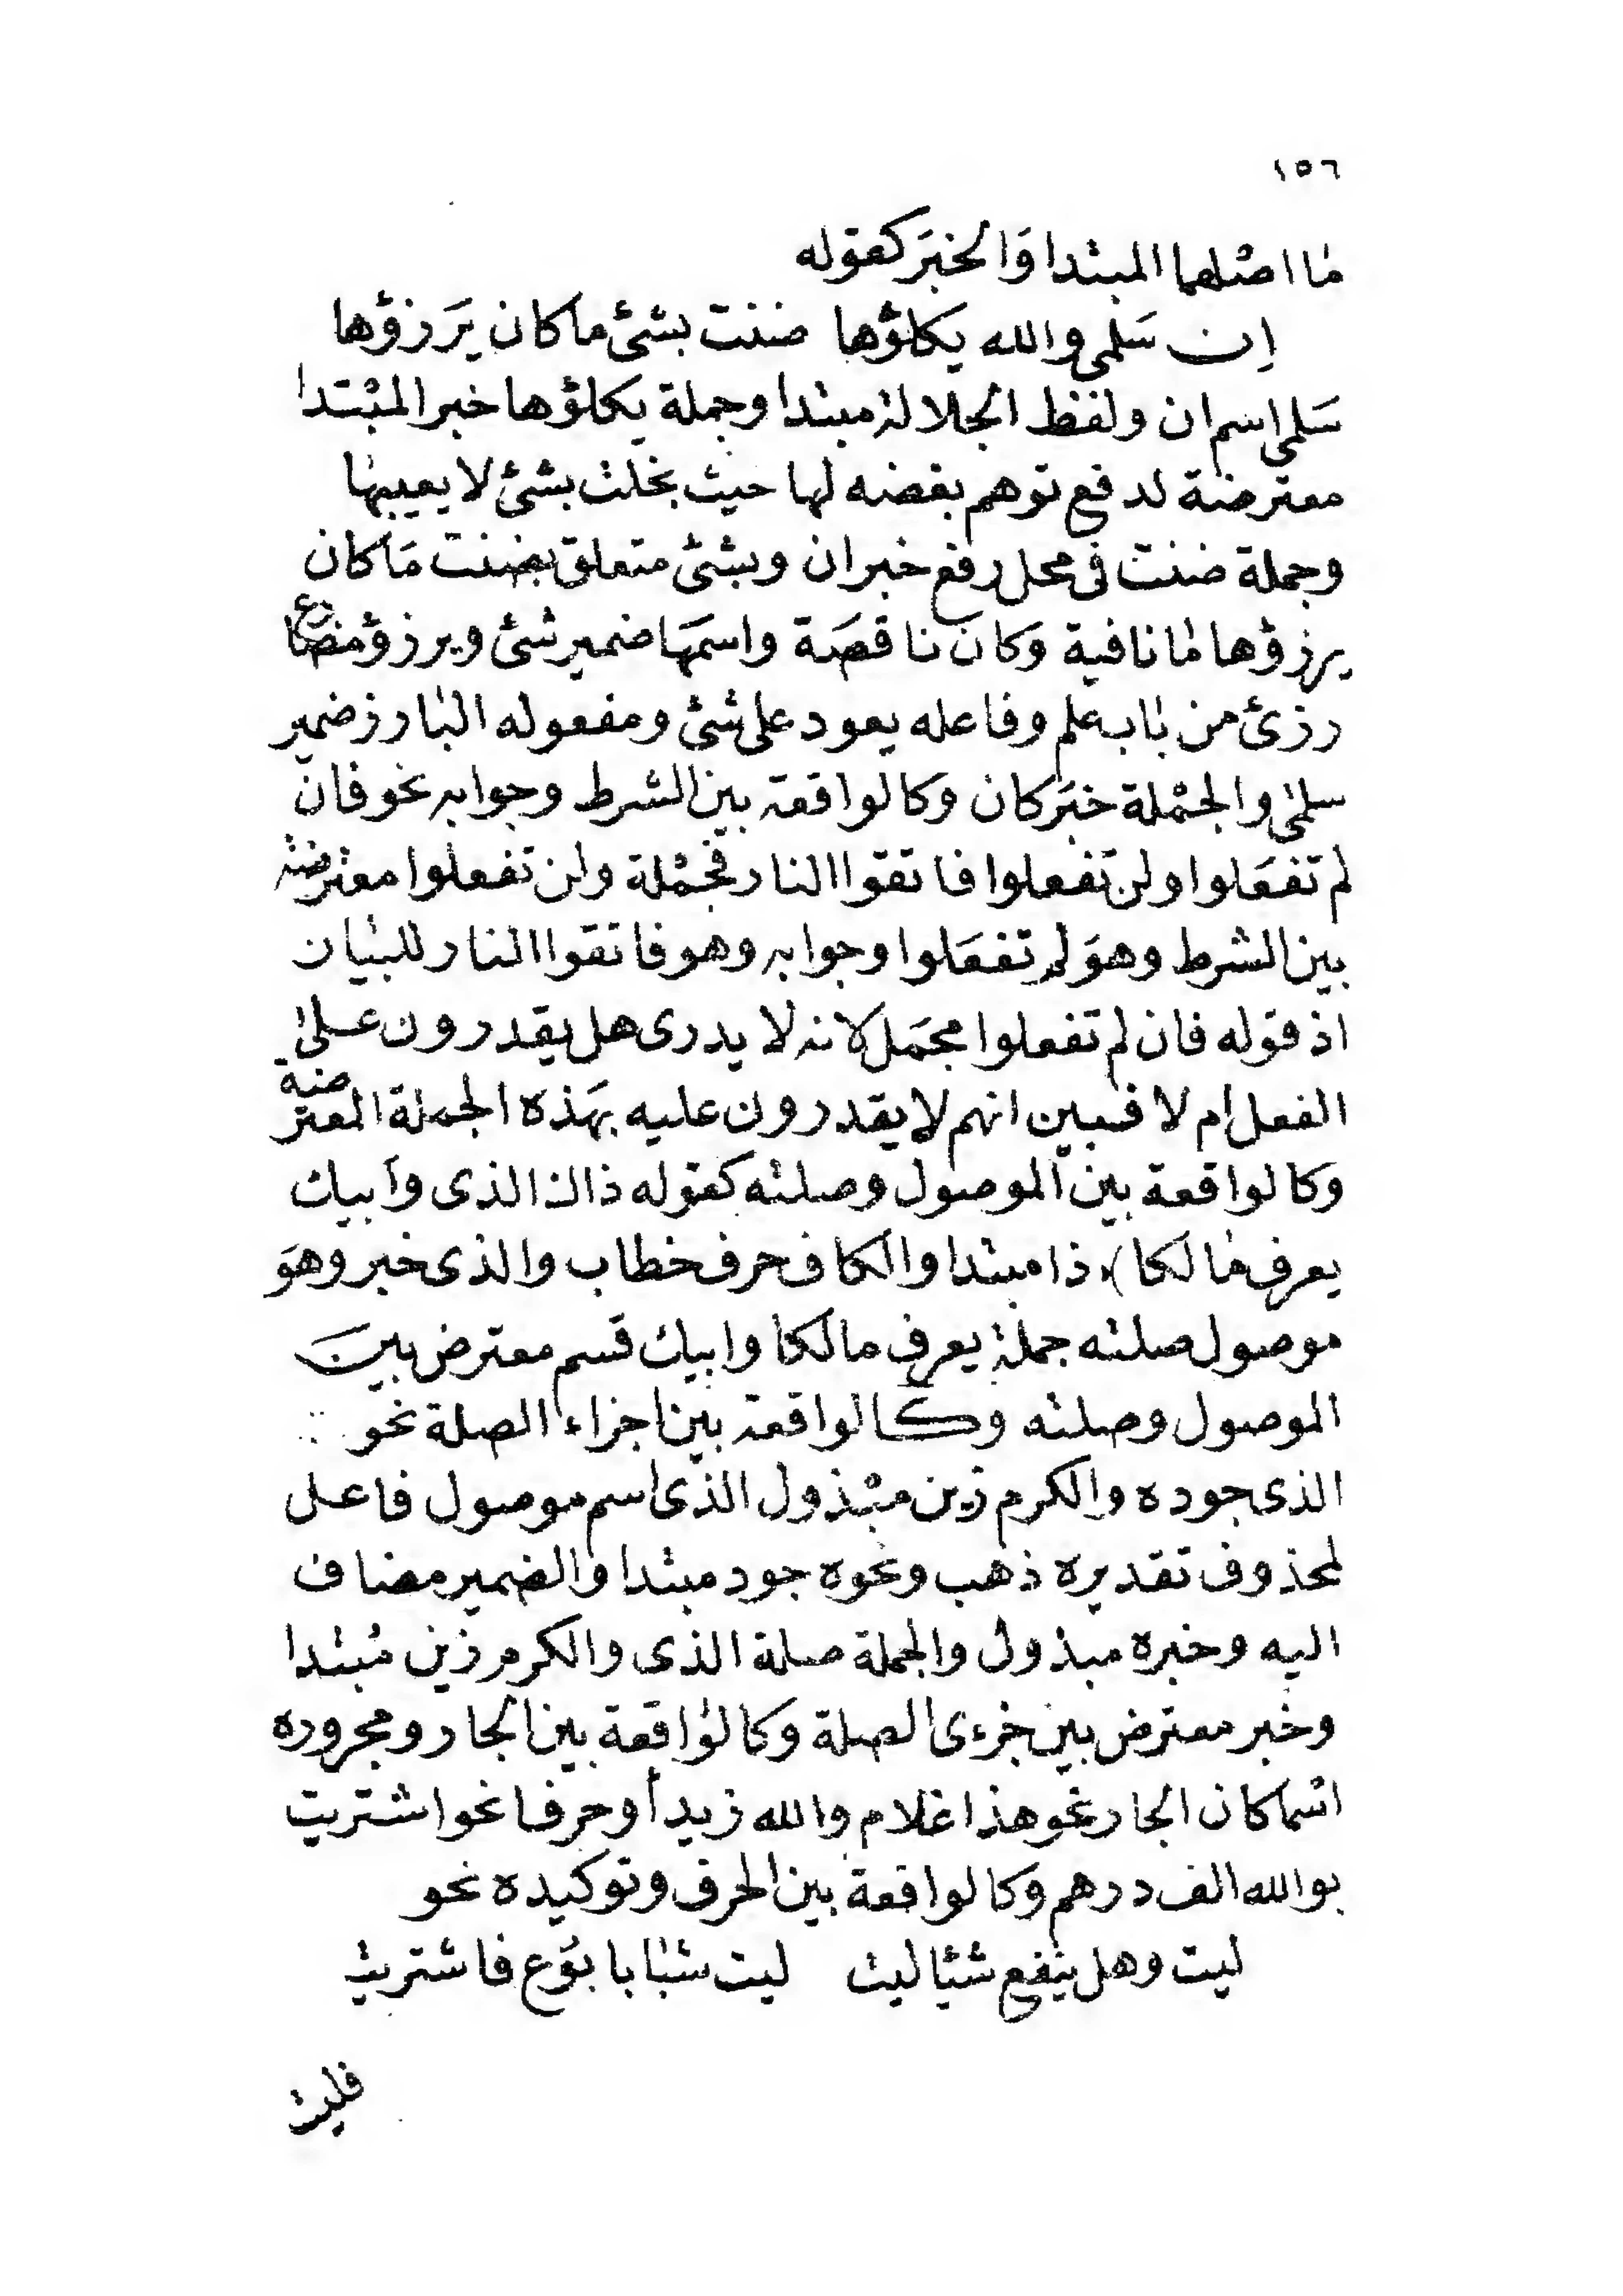 ١٥٦
ما اصلهما المبتدا وَالخبَر كقوله
اِن سَلمى والله يكلؤها ضننت بشئ ماكان يَرزؤها
سَلمى اسم ان ولفظ الجلالة مبتدا وجملة يكلؤها خبر المبْتدا
معترضة لدفع توهم بغضه لها حيث بخلت بشئ لا يعيبها
وجملة ضنت فى محل رفع خبر ان وبشئ متعلق بضنت مَاكان
يرزؤها مانافية وَكان ناقصَة واسمَها ضمير شئ ويرزؤ مضارع
رزئ من باب علم وفاعله يعود على شئ ومفعوله البارز ضمير
سلمى والجمْلة خبَر كان وَكالواقعة بين الشرط وجوابه نحو فان
لم تفعَلوا ولن تفعلوا فاتقوا النار فجمْلة ولن تفعلوا معترضة
بين الشرط وهوَ لم تفعَلوا وجوابه وهو فاتقوا النار للبيان
اذ قوله فان لم تفعلوا مجمَل لانه لا يدرى هل يقدرون على
الفعل ام لا فبين انهم لا يقدرون عليه بهَذه الجملة المعترضة
وكالواقعة بين الموصول وصلته كقوله ذاك الذى وَابيك
يعرف مالكا) ذا مبتدا والكاف حرف خطاب والذى خبر وهوَ
موصول صلته جملة يعرف مالكا وابيك قسم معترض بينَ
الموصول وصلته وكالواقعة بين اجزاء الصلة نحو
الذى جوده والكرم زين مبْذول الذى اسم موصول فاعل
لمحذوف تقديره ذهب ونحوه جود مبتدا والضمير مضاف
اليه وخبره مبذول والجملة صلة الذى والكرم زين مُبتدا
وخبر معترض بين جزءى الصلة وكالواقعة بين الجار ومجروره
اسْما كان الجار نحو هذا غلام والله زيد أو حرفا نحو اشتريت
بوالله الف درهم وكالواقعة بين الحرف وتوكيده نحو
ليت وهل ينفع شيًا ليت ليت شبابا بوُع فاشتريت
فليت